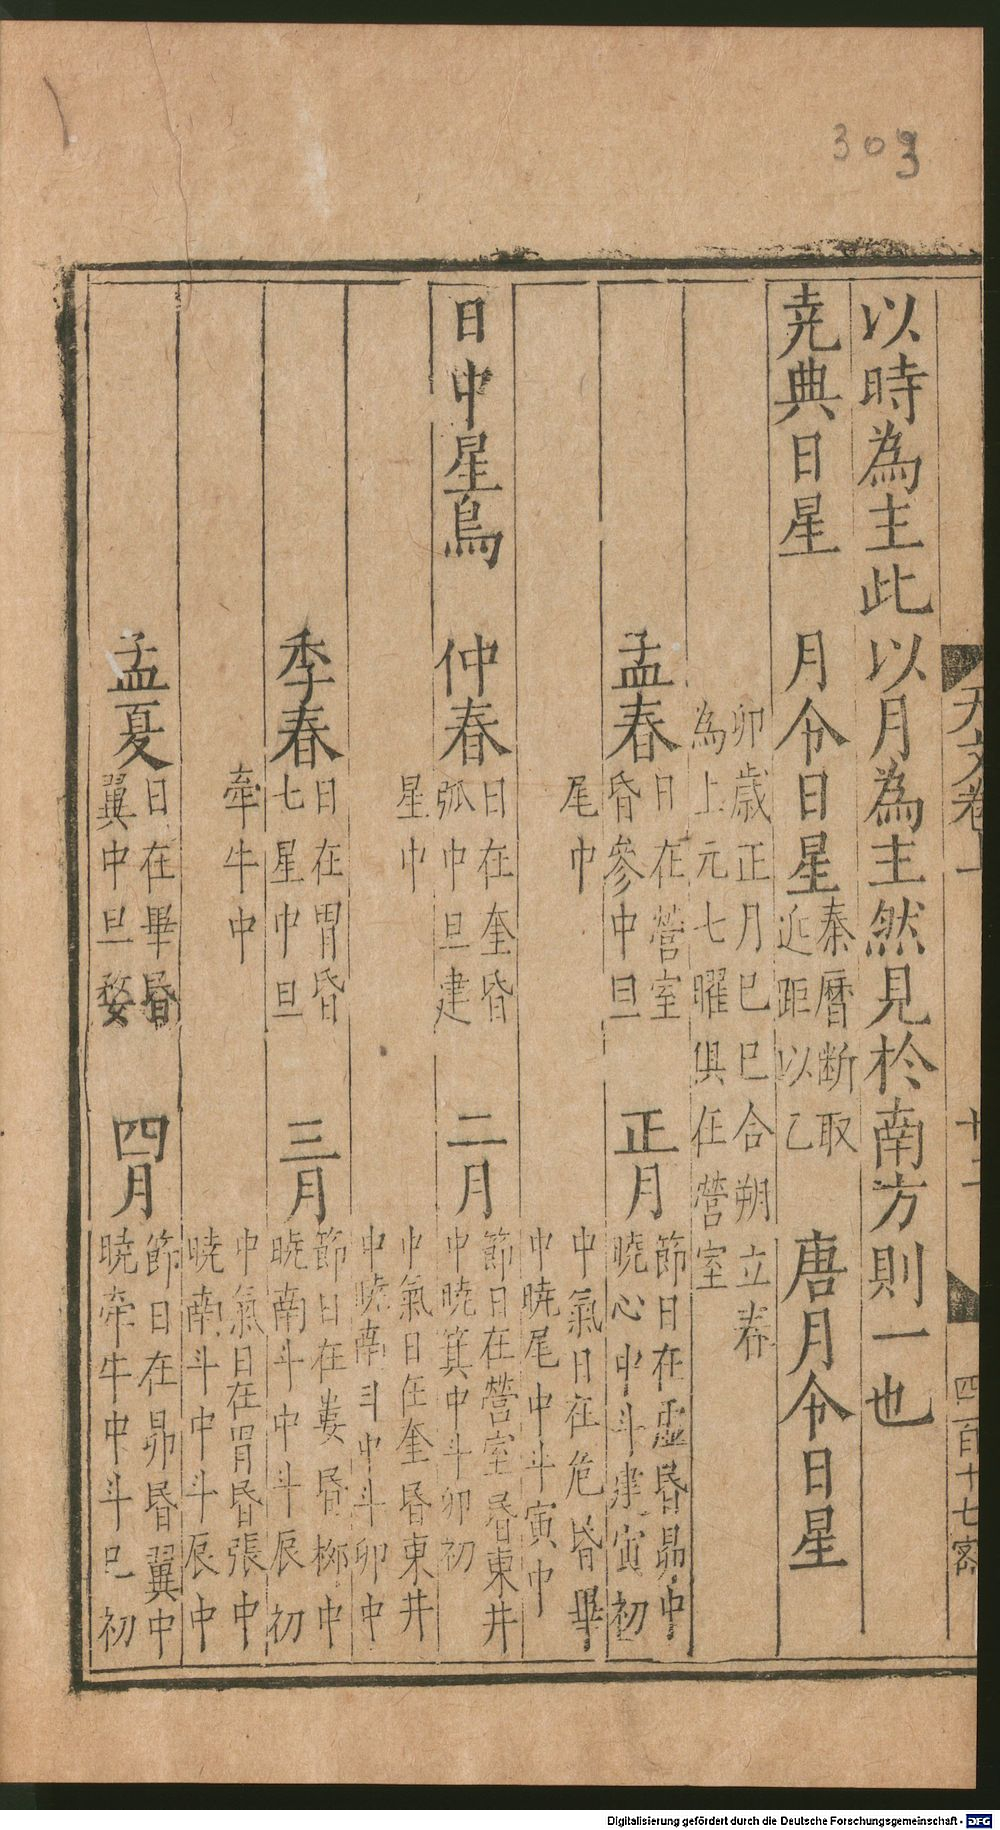 303
天文卷上
十二
四百十七
以時為主此以月為主然見於南方則一也
尭典日星　月令日星　秦曆断取
近距以乙　唐月令日星
卯歲正月己巳合朔立春
為上元七曜俱在營室
孟春　日在營室
昏參中旦　正月　節日在虛昏昴中
曉心中斗建寅初
尾中　中氣日在危昏畢
中曉尾中斗寅中
日中星鳥　仲春　日在奎昏
弧中旦建　二月　節日在營室昏東井
中曉箕中斗卯初
星中　中氣日在奎昏東井
中曉南斗中斗卯中
季春　日在胃昏
七星中旦　三月　節日在婁昏柳中
曉南斗中斗辰初
牽牛中　中氣日在胃昏張中
曉南斗中斗辰中
孟夏　日在畢昏
翼中旦婺　四月　節日在昴昏翼中
曉牽牛中斗巳初
Digitalisierung gefördert durch die Deutsche Forschungsgemeinschaft - DFG